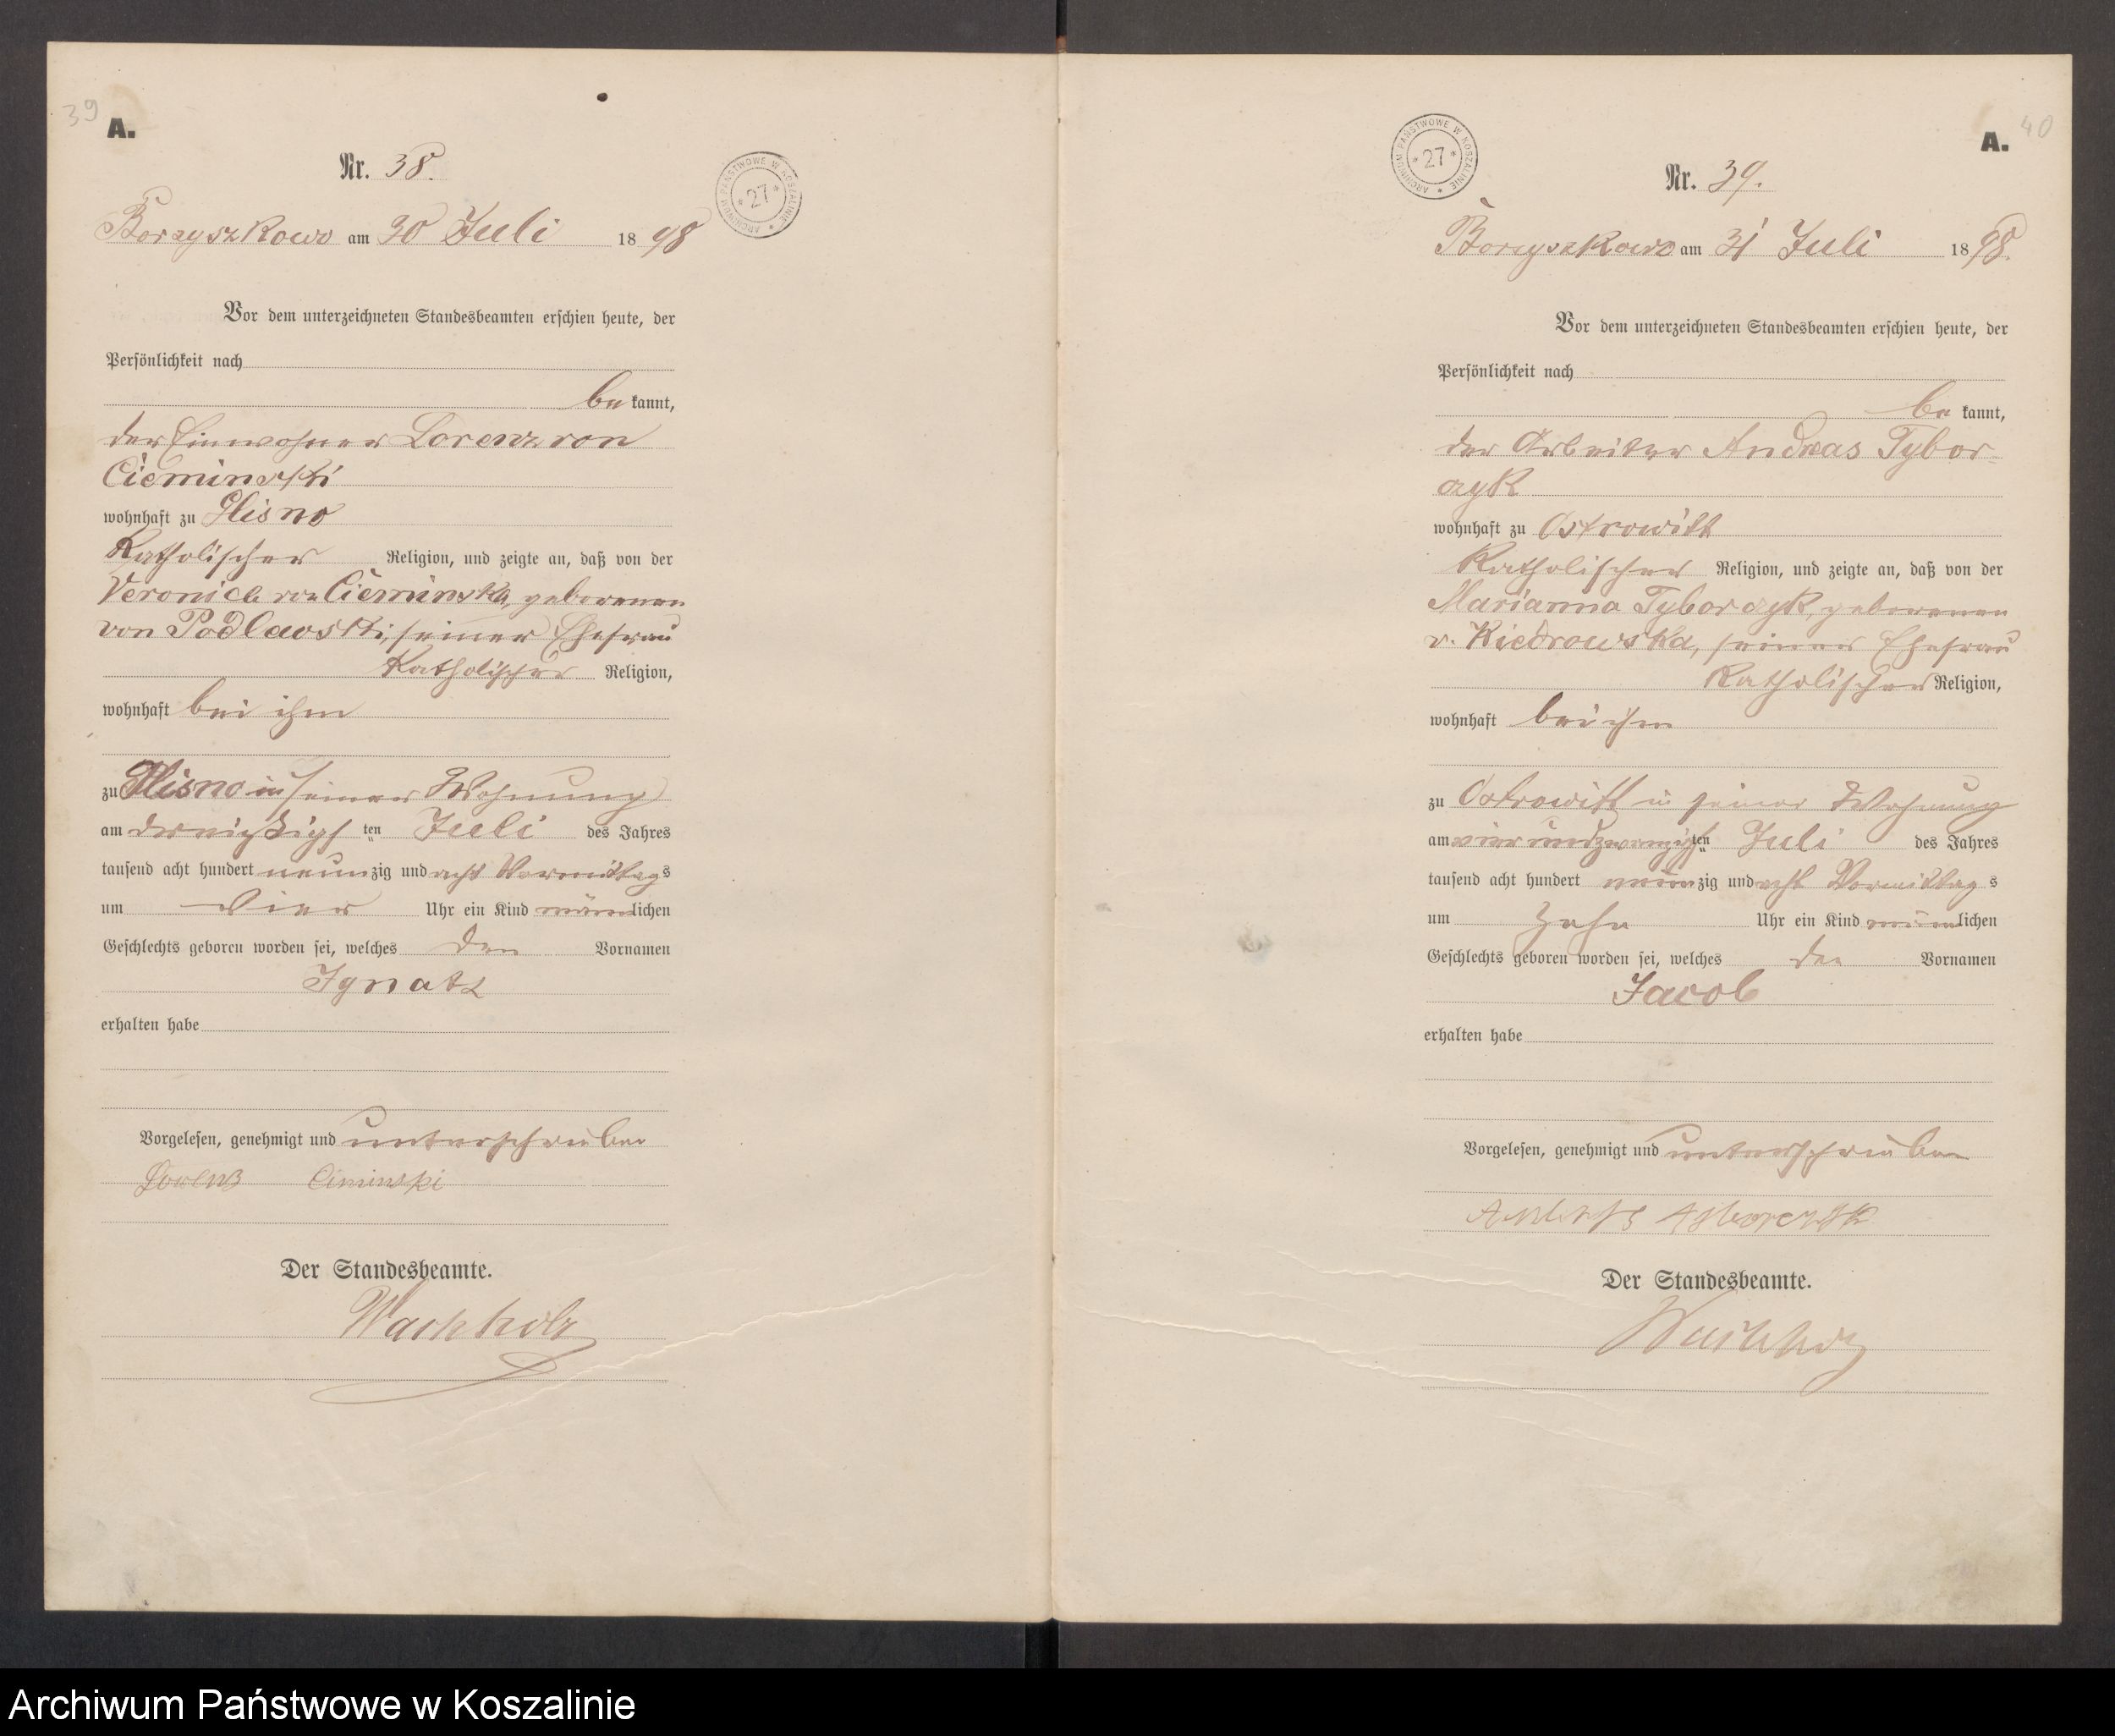 39
A.
Nr. 38.
ARCHIWUM PAŃSTWOWE W KOSZALINIE
* 27 *
Borzyszkowo am 30 Juli 1898
Vor dem unterzeichneten Standesbeamten erschien heute, der
Persönlichkeit nach
be kannt,
der Einwohner Lorenz von
Cieminski
wohnhaft zu Glisno
Katholischer Religion, und zeigte an, daß von der
Veronica von Cieminska, geborenen
von Podlawski, seiner Ehefrau
Katholischer Religion,
wohnhaft bei ihm
zu Glisno in seiner Wohnung
am dreißigsten Juli des Jahres
tausend acht hundert neunzig und acht Vormittags
um vier Uhr ein Kind männlichen
Geschlechts geboren worden sei, welches den Vornamen
Ignatz
erhalten habe
Vorgelesen, genehmigt und unterschrieben
Lorenz Ciminski
Der Standesbeamte.
Wachholz
40
A.
ARCHIWUM PAŃSTWOWE W KOSZALINIE
* 27 *
Nr. 39.
Borzyszkowo am 31 Juli 1898.
Vor dem unterzeichneten Standesbeamten erschien heute, der
Persönlichkeit nach
be kannt,
der Arbeiter Andreas Tybor-
czyk
wohnhaft zu Ostrowitt
Katholischer Religion, und zeigte an, daß von der
Marianna Tyborczyk, geborenen
v. Kiedrowska, seiner Ehefrau
Katholischer Religion,
wohnhaft bei ihm
zu Ostrowitt in seiner Wohnung
am vierundzwanzigsten Juli des Jahres
tausend acht hundert neunzig und acht Vormittags
um zehn Uhr ein Kind männlichen
Geschlechts geboren worden sei, welches den Vornamen
Jacob
erhalten habe
Vorgelesen, genehmigt und unterschrieben
Der Standesbeamte.
Wachholz
Archiwum Państwowe w Koszalinie